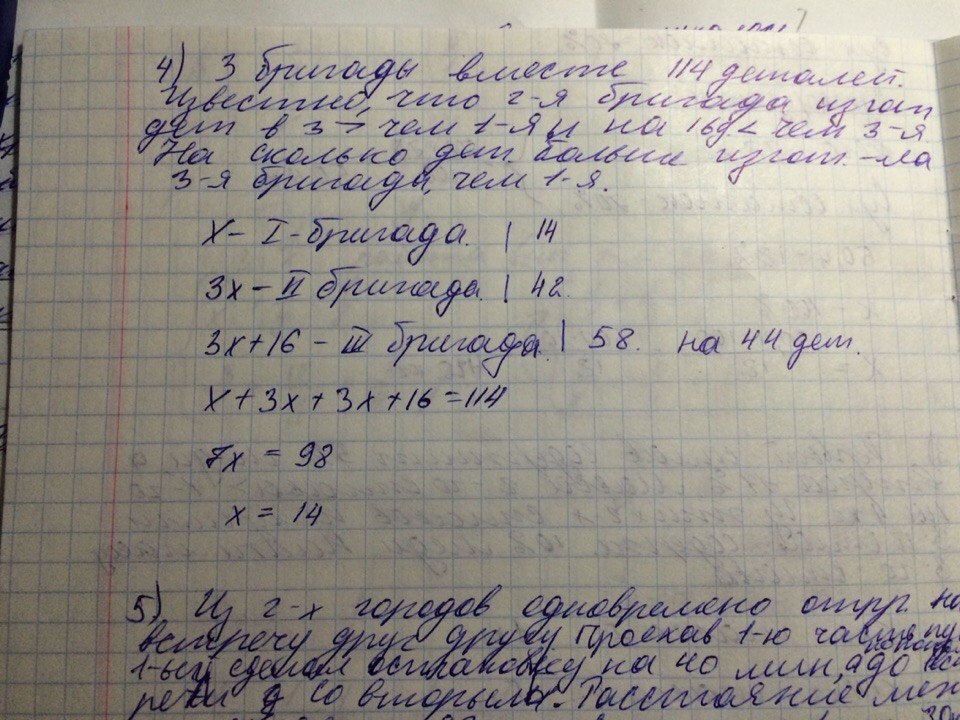 4) 3 бригады вместе 114 деталей.
Известно, что 2-я бригада изгот
дет в 3 > чем 1-я и на 16д < чем 3-я
На сколько дет. больше изгот.-ла
3-я бригада, чем 1-я.
X - I - бригада. | 14
3x - II бригада. | 42.
3x+16 - III бригада. | 58. на 44 дет.
X + 3x + 3x + 16 = 114
7x = 98
x = 14
5) Из 2-х городов одновремено отпр. на
встречу друг другу Проехав 1-ю часть
1-ый сделал остановку на 40 мин, а до
речи со вторым. Расстояние меж